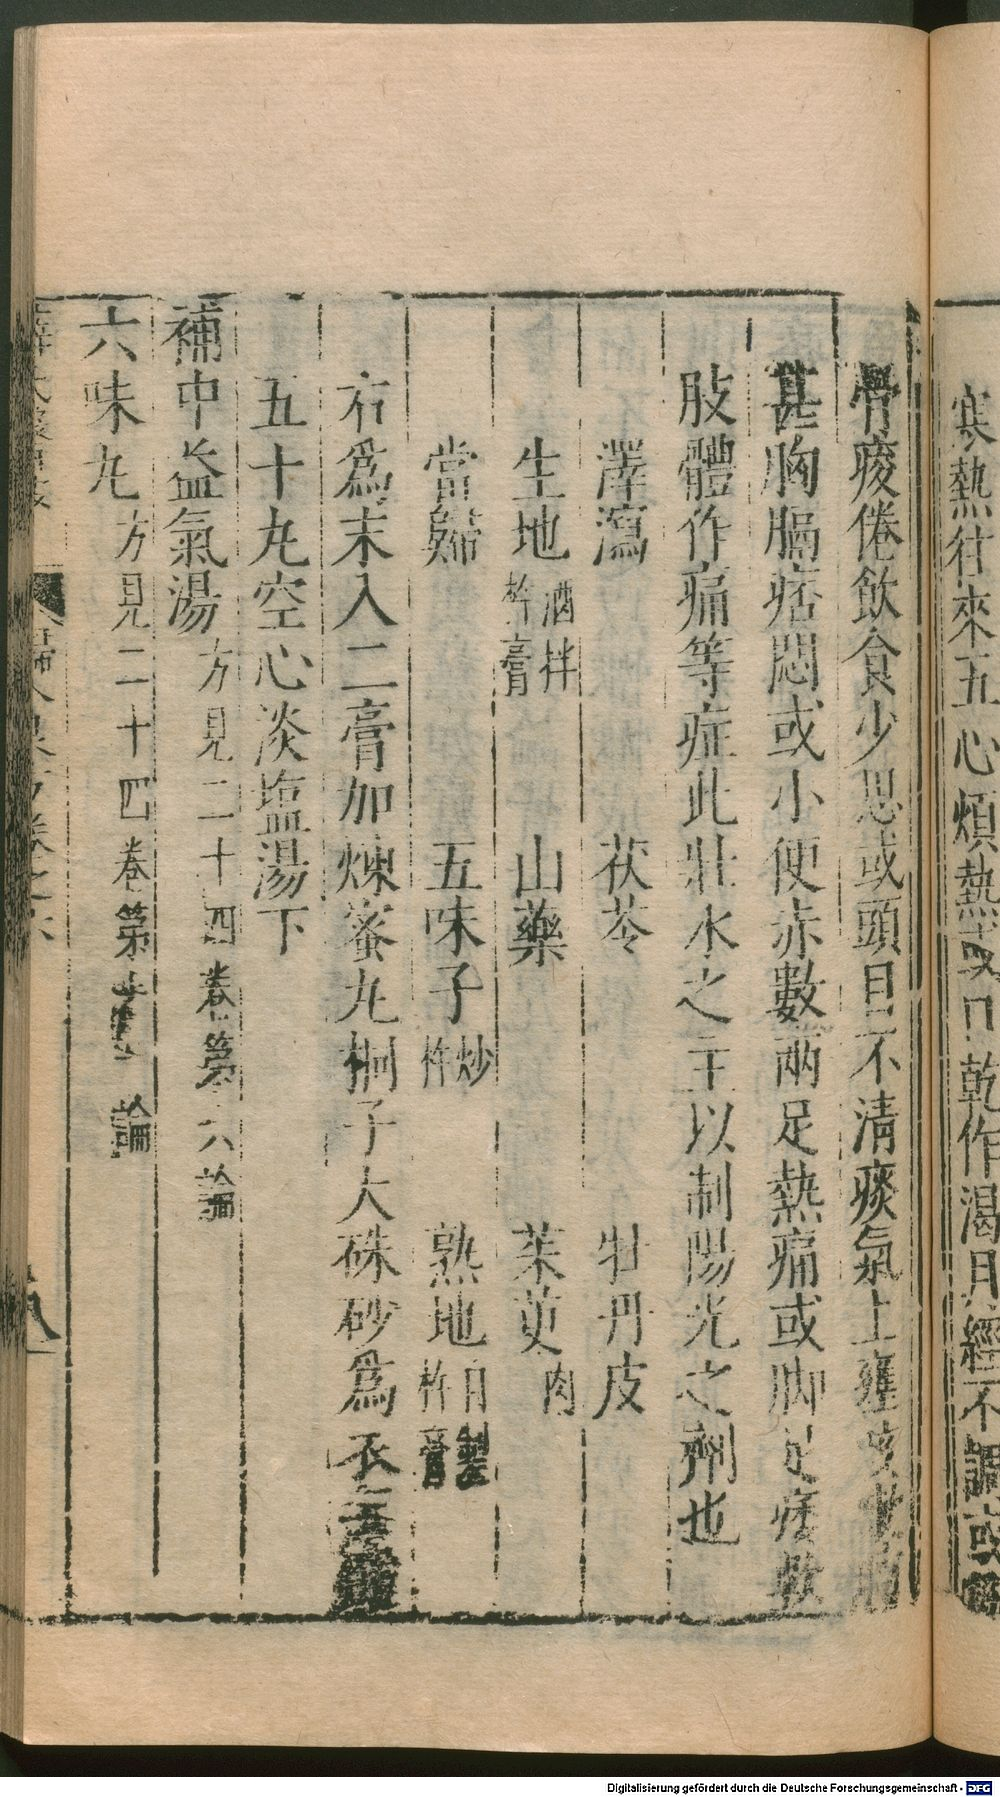 寒熱往來五心煩熱或口乾作渴月經不調或
骨痠倦飲食少思或頭目不清痰氣上壅
甚胸膈痞悶或小便赤數兩足熱痛或脚足痿軟
肢體作痛等症此壯水之主以制陽光之劑也
澤瀉 茯苓 牡丹皮
生地酒拌杵膏 山藥 茱萸肉
當歸 五味子炒杵 熟地自製杵膏
右爲末入二膏加煉蜜丸桐子大硃砂爲衣
五十丸空心淡塩湯下
補中益氣湯方見二十四卷第六論
六味丸方見二十四卷第 論
Digitalisierung gefördert durch die Deutsche Forschungsgemeinschaft - DFG